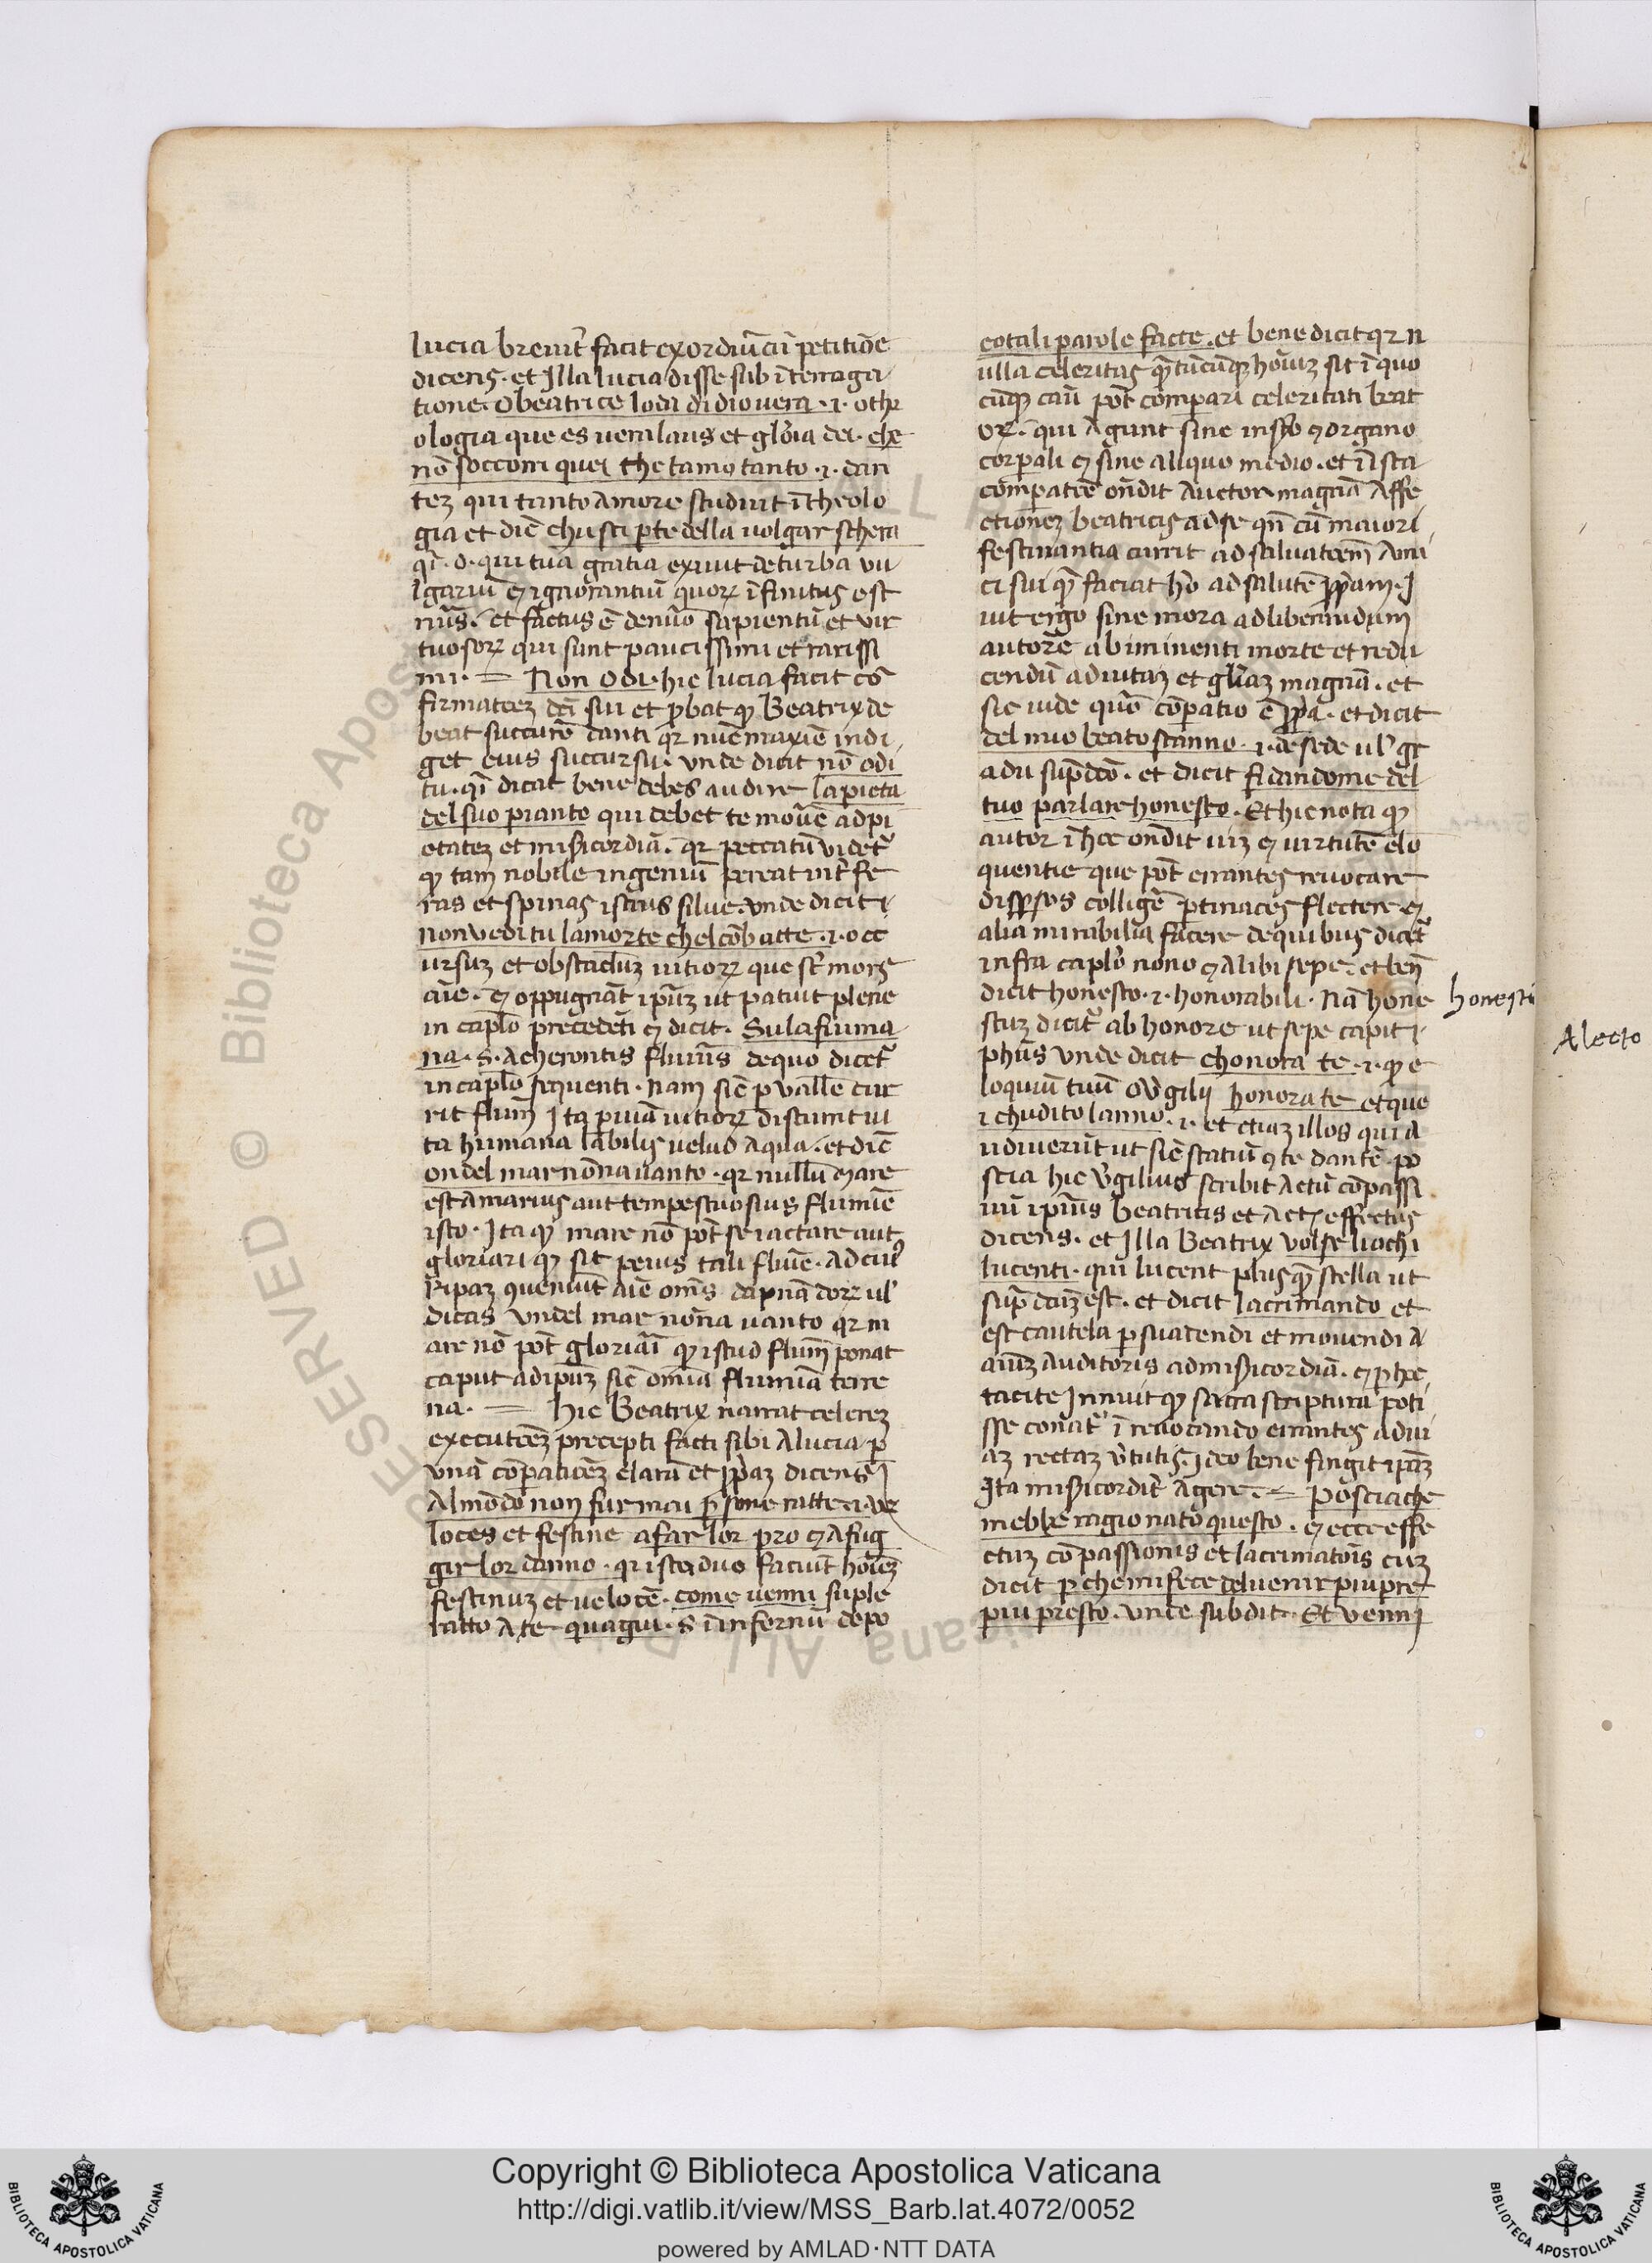 lucia breuit̃ facit exordiũ cũ petitiõe
dicens · et Illa lucia disse sub ĩterroga
tione · O beatrice loda di dio uera · i · o the
ologia que es uera laus et glõia dei · che
nõ soccorri quei che tamo tanto · i · dan
tez qui tanto amore studuit ĩ theolo
gia et diẽ chusci p̱te della uolgar schera
q̃i · d · qui tua gratia exiuit de turba vu
lgariũ ⁊ ignorantiũ quoꝝ ĩfinitus est
nũs · et factus ẽ de nũo sapientũ et vir
tuosoꝝ qui sunt paucissimi et rarissi
mi · — Non odi · hic lucia facit cõ
firmatõez dc̃i sui et p̱bat ꝙ Beatrix de
beat succurrẽ danti qꝛ nũc maxiẽ indi
get eius succursu · vnde dicit nõ odi
tu · q̃i dicat bene debes audire la pieta
del suo pianto qui debet te mouẽ ad pi
etatez et misicordiã · qꝛ peccatũ videt̃
ꝙ tam nobile ingeniũ pereat int̃ fe
ras et spinas istius silue · vnde dicit
non vedi tu la morte chel cõbatte · i · occ
ursuz et obstaculuz uitioꝝ que st̃ mors
aĩe · ⁊ oppugnãt ipũz ut patuit plene
in cap̃lo precedẽti ⁊ dicit · Su la fiuma
na · s · acherontis fluuis de quo dicet̃
in cap̃lo sequenti · nam sic̃ p̱ valle cur
rit flum̃ Ita p̱ uiã uitioꝝ discurrit ui
ta humana labilis uelud aqua · et diẽ
on del mar nõ na uanto · qꝛ nullũ mare
est amarius aut tempestuosius flumiẽ
isto · Ita ꝙ mare nõ põt se iactare aut
gloriari ꝙ sit peius tali flũie · ad cuiꝰ
Ripaz ꝯueniũt aĩe om̃s dapnãdoꝝ ul̃
dicas vn del mar nõ na uanto qꝛ m
are nõ põt gloriari ꝙ istud flum̃ ponat
caput ad ipuz̃ sic̃ om̃ia flumina terre
na · — Hic Beatrix narrat celerez
executõez precepti facti sibi a lucia p̱
vnã cõpatiõez clarã et p̱p̱az dicens
Al mõdo non fur mai p̱sone ratte · i · ve
loces et festine a far lor pro ⁊ a fug
gir lor danno · qꝛ ista duo faciũt hoĩez
festinuz et uelocẽ · come uenni suple
ratto a te quagiu · s · ĩ infernũ depo
cotali parole facte · et bene dicit qꝛ n
ulla celeritas q̃tũcũqꝫ hoĩuz sit ĩ quo
cũqꝫ cãu põt compari celeritati beat
oꝝ · qui Agunt sine inst̃o ⁊ organo
corp̱ali ⁊ sine aliquo medio · et ĩ ista
comp̱atõe oñdit auctor magnã affe
ctionez beatricis ad se qñ cũ maiori
festinantia currit ad saluatõem ami
ci sui q̃ faciat hõ ad salutẽ p̱p̱am · J
uit ergo sine mora ad liberandum
autorẽ ab iminenti morte et redu
cendũ ad uitaz et glĩaz magnã · et
sic uide quõ cõp̱atio ẽ p̱p̱a · et dicit
del mio beato scanno · i · de sede ul̃ gr
adu sup̱dc̃o · et dicit fidandome del
tuo parlare honesto · Et hic nota ꝙ
autor ĩ hoc oñdit uiz ⁊ uirtutẽ elo
quentie que põt errantes reuocare
disp̱sos colligẽ p̱tinaces flectere ⁊
alia mirabilia facere de quibus dicet̃
infra cap̃lo nono ⁊ alibi sepe · et ben̄
dicit honesto · i · honorabili · Nã hone
stuz dicit̃ ab honore ut sepe capit
ph̃us vnde dicit chonora te · i · ꝙ e
loquiũ tuũ o v̾gilij honora te et que
i chudito lanno · i · et etiaz illos qui a
udiuerũt ut sic̃ statiũ ⁊ te dantẽ · po
scia hic v̾gilius scribit actũ cõpassi
uũ ipĩus beatricis et act; effectus
dicens · et Illa Beatrix volse liochi
lucenti · qui lucent plusq̃ stella ut
sup̱ dc̃uz est · et dicit lacrimando et
est cautela p̱suadendi et mouendi a
aĩuz auditoris ad misicordiã · ⁊ p̱ hoc
tacite Innuit ꝙ sacra scriptura poti
sse conat̃ ĩ reuocando errantes ad ui
az rectaz v̾tutis · Ideo bene fingit ipaz̃
Ita misicordit̃ agere · — Poscia che
mebbe ragionato questo · ⁊ ecce effe
ctuz cõpassionis et lacrimatõis cuz
dicit p̱ che mi fece del uenir piu pre
piu presto · vnde subdit · Et venni
honesti
Alecto
Copyright © Biblioteca Apostolica Vaticana
http://digi.vatlib.it/view/MSS_Barb.lat.4072/0052
powered by AMLAD·NTT DATA
BIBLIOTECA APOSTOLICA VATICANA
BIBLIOTECA APOSTOLICA VATICANA